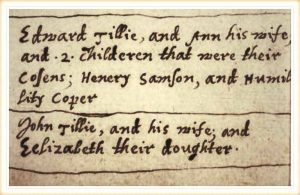 Edward Tillie, and Ann his wife,
and .2. Childeren that were their
Cosens; Henery Samson, and Humil
lity Coper
John Tillie, and his wife; and
Eelizabeth their doughter.